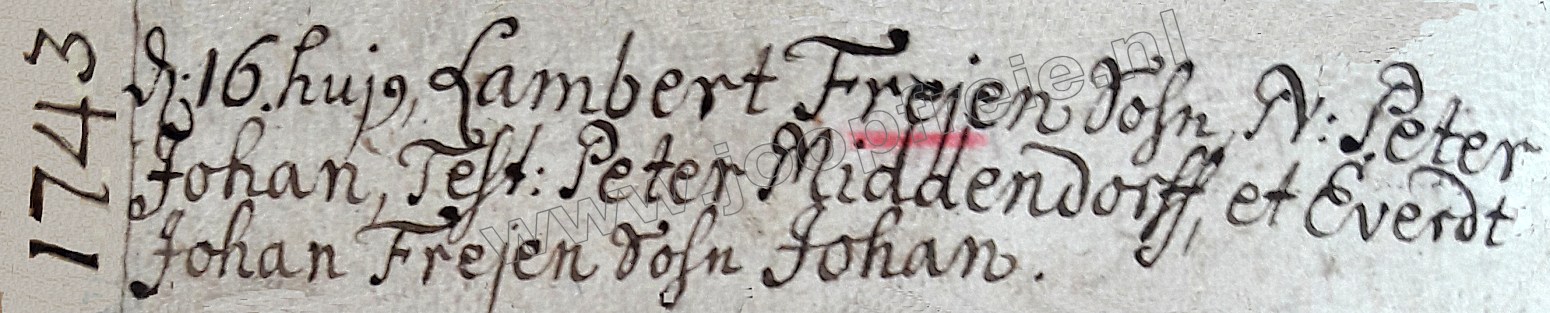 1743
d: 16. hujq, Lambert Frejen Sohn, N: Peter
Johan, Test: Peter Middendorff, et Everdt
Johan Frejen Sohn Johan.
www.joopfreie.nl